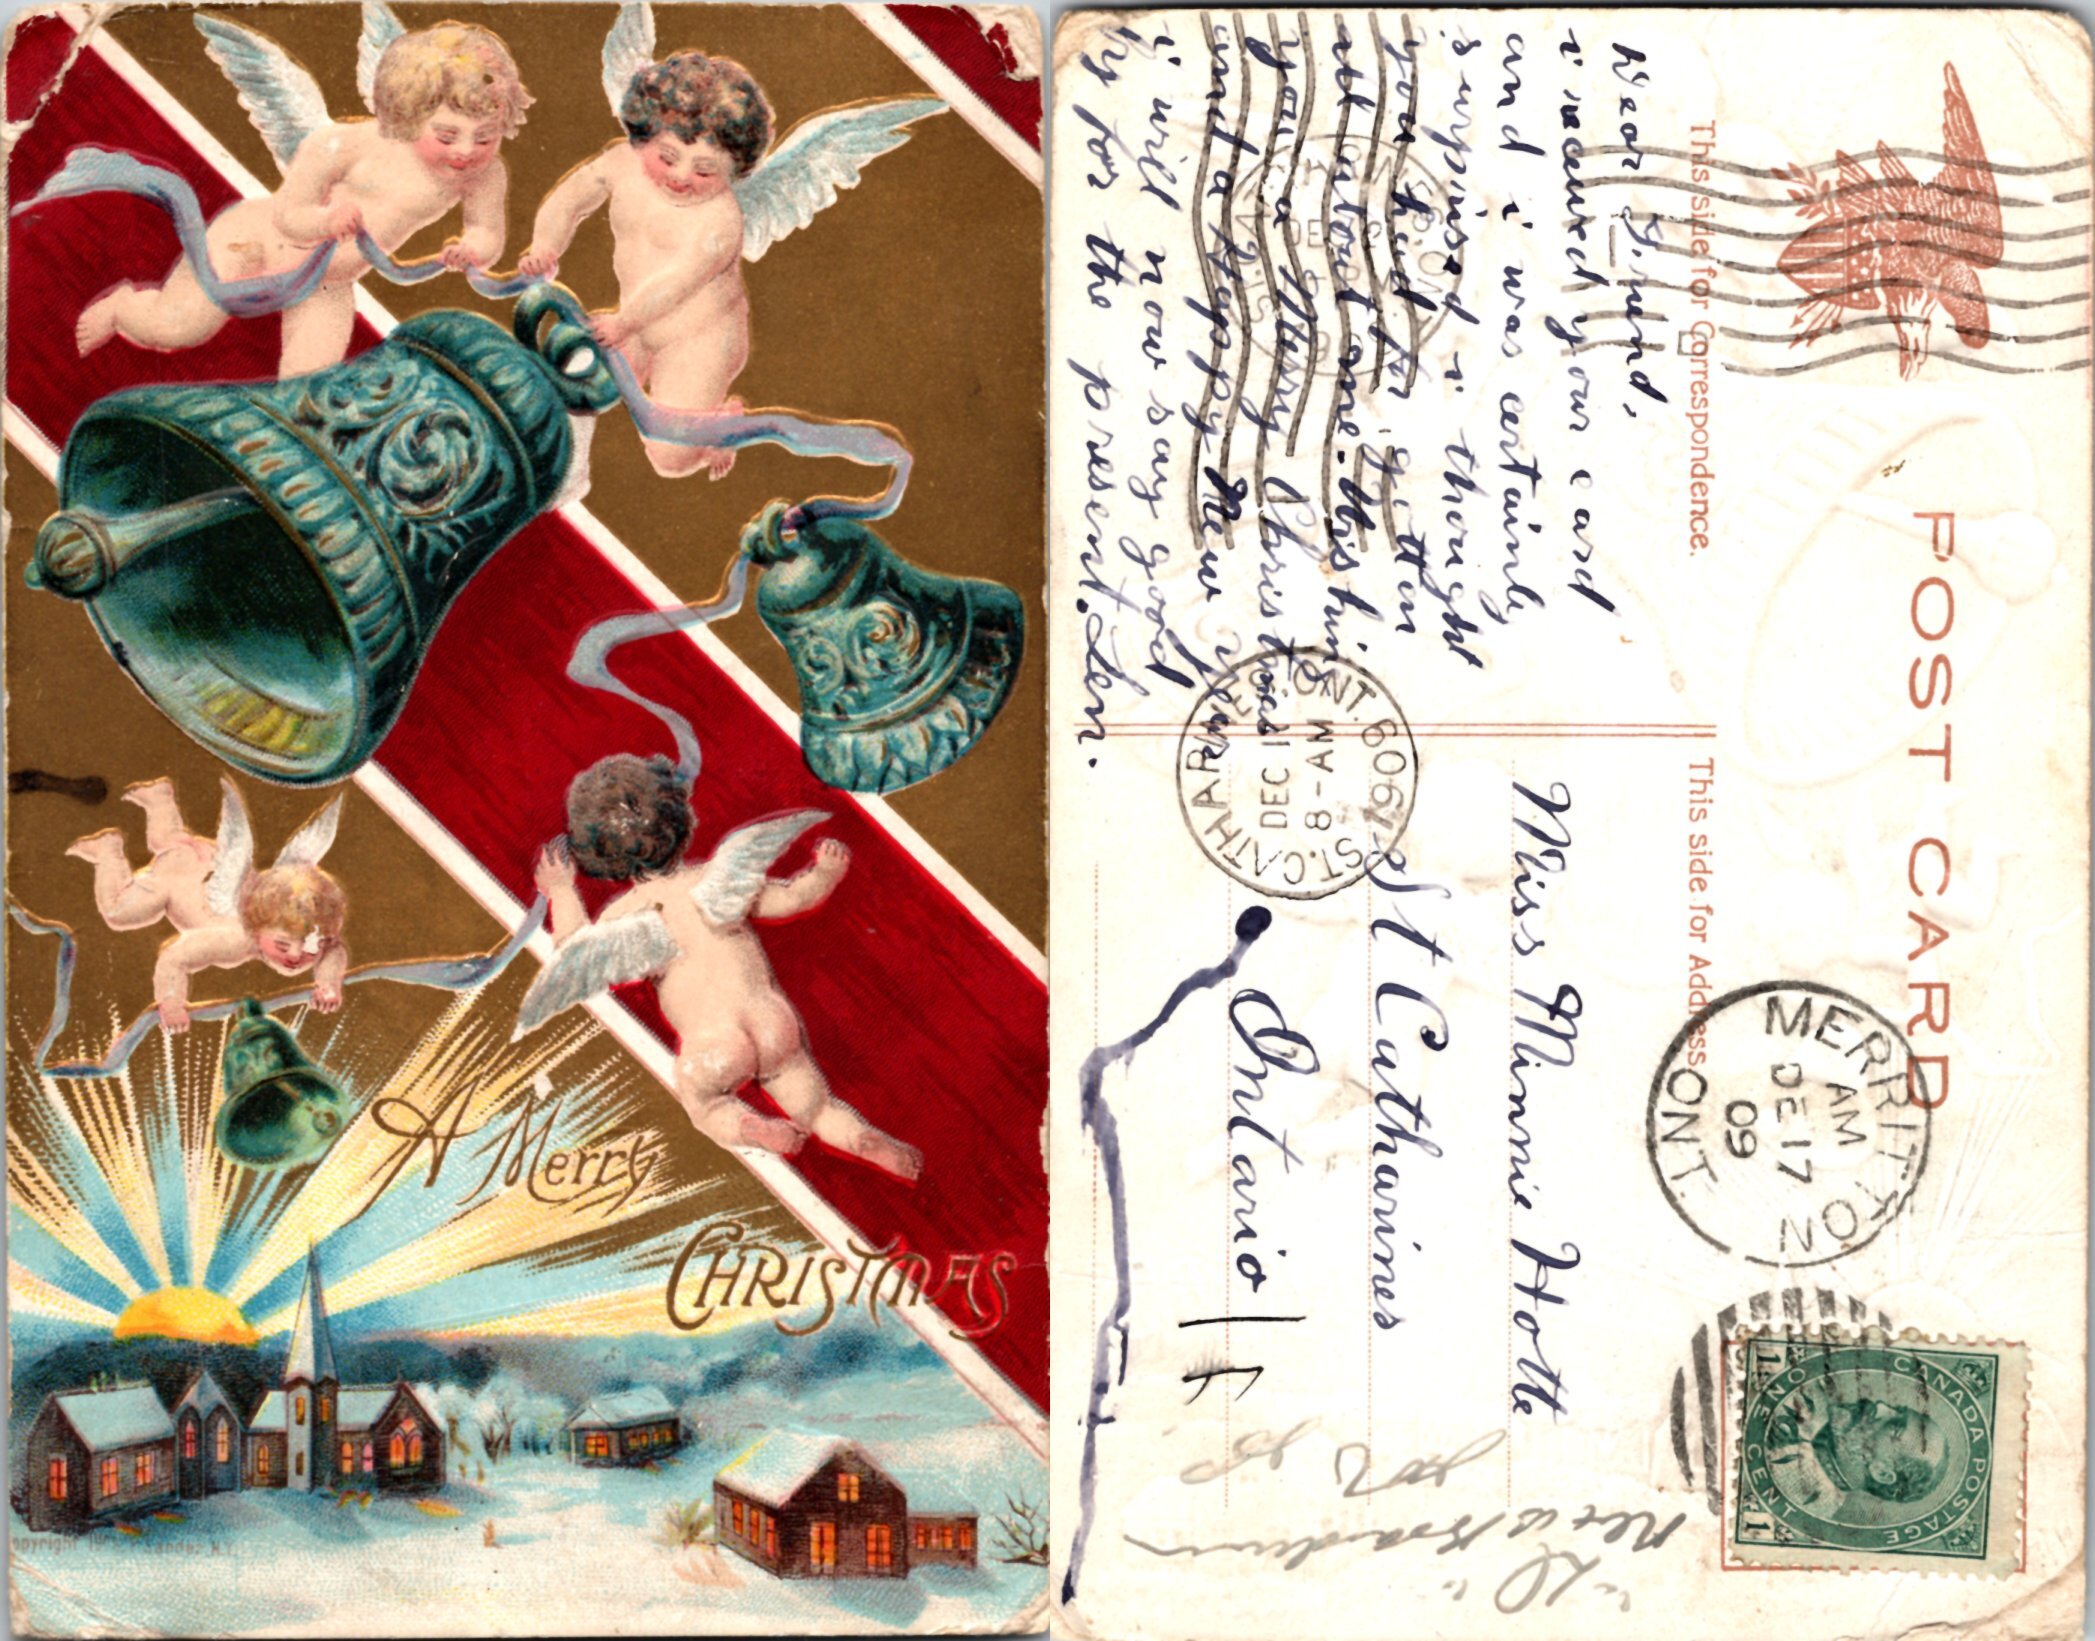 A Merry
CHRISTMAS
POST CARD
This side for Correspondence.
This side for Address
Dear Friend,
i received your card
and i was certainly
surprised i thought
you had for gotten
all about me. Wishing
you a Merry Christmas
and a Happy New Year
i will now say good
by for the present. Len.
Miss Minnie Hotte
St Catharines
Ontario
MERRITTON
AM
DE 17
09
ONT.
ST. CATHARINES ONT. 1909
DEC 1
8 - AM
CANADA POSTAGE
ONE CENT
1 1